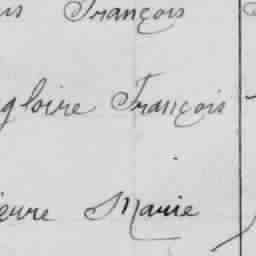 François
gloire François
Marie